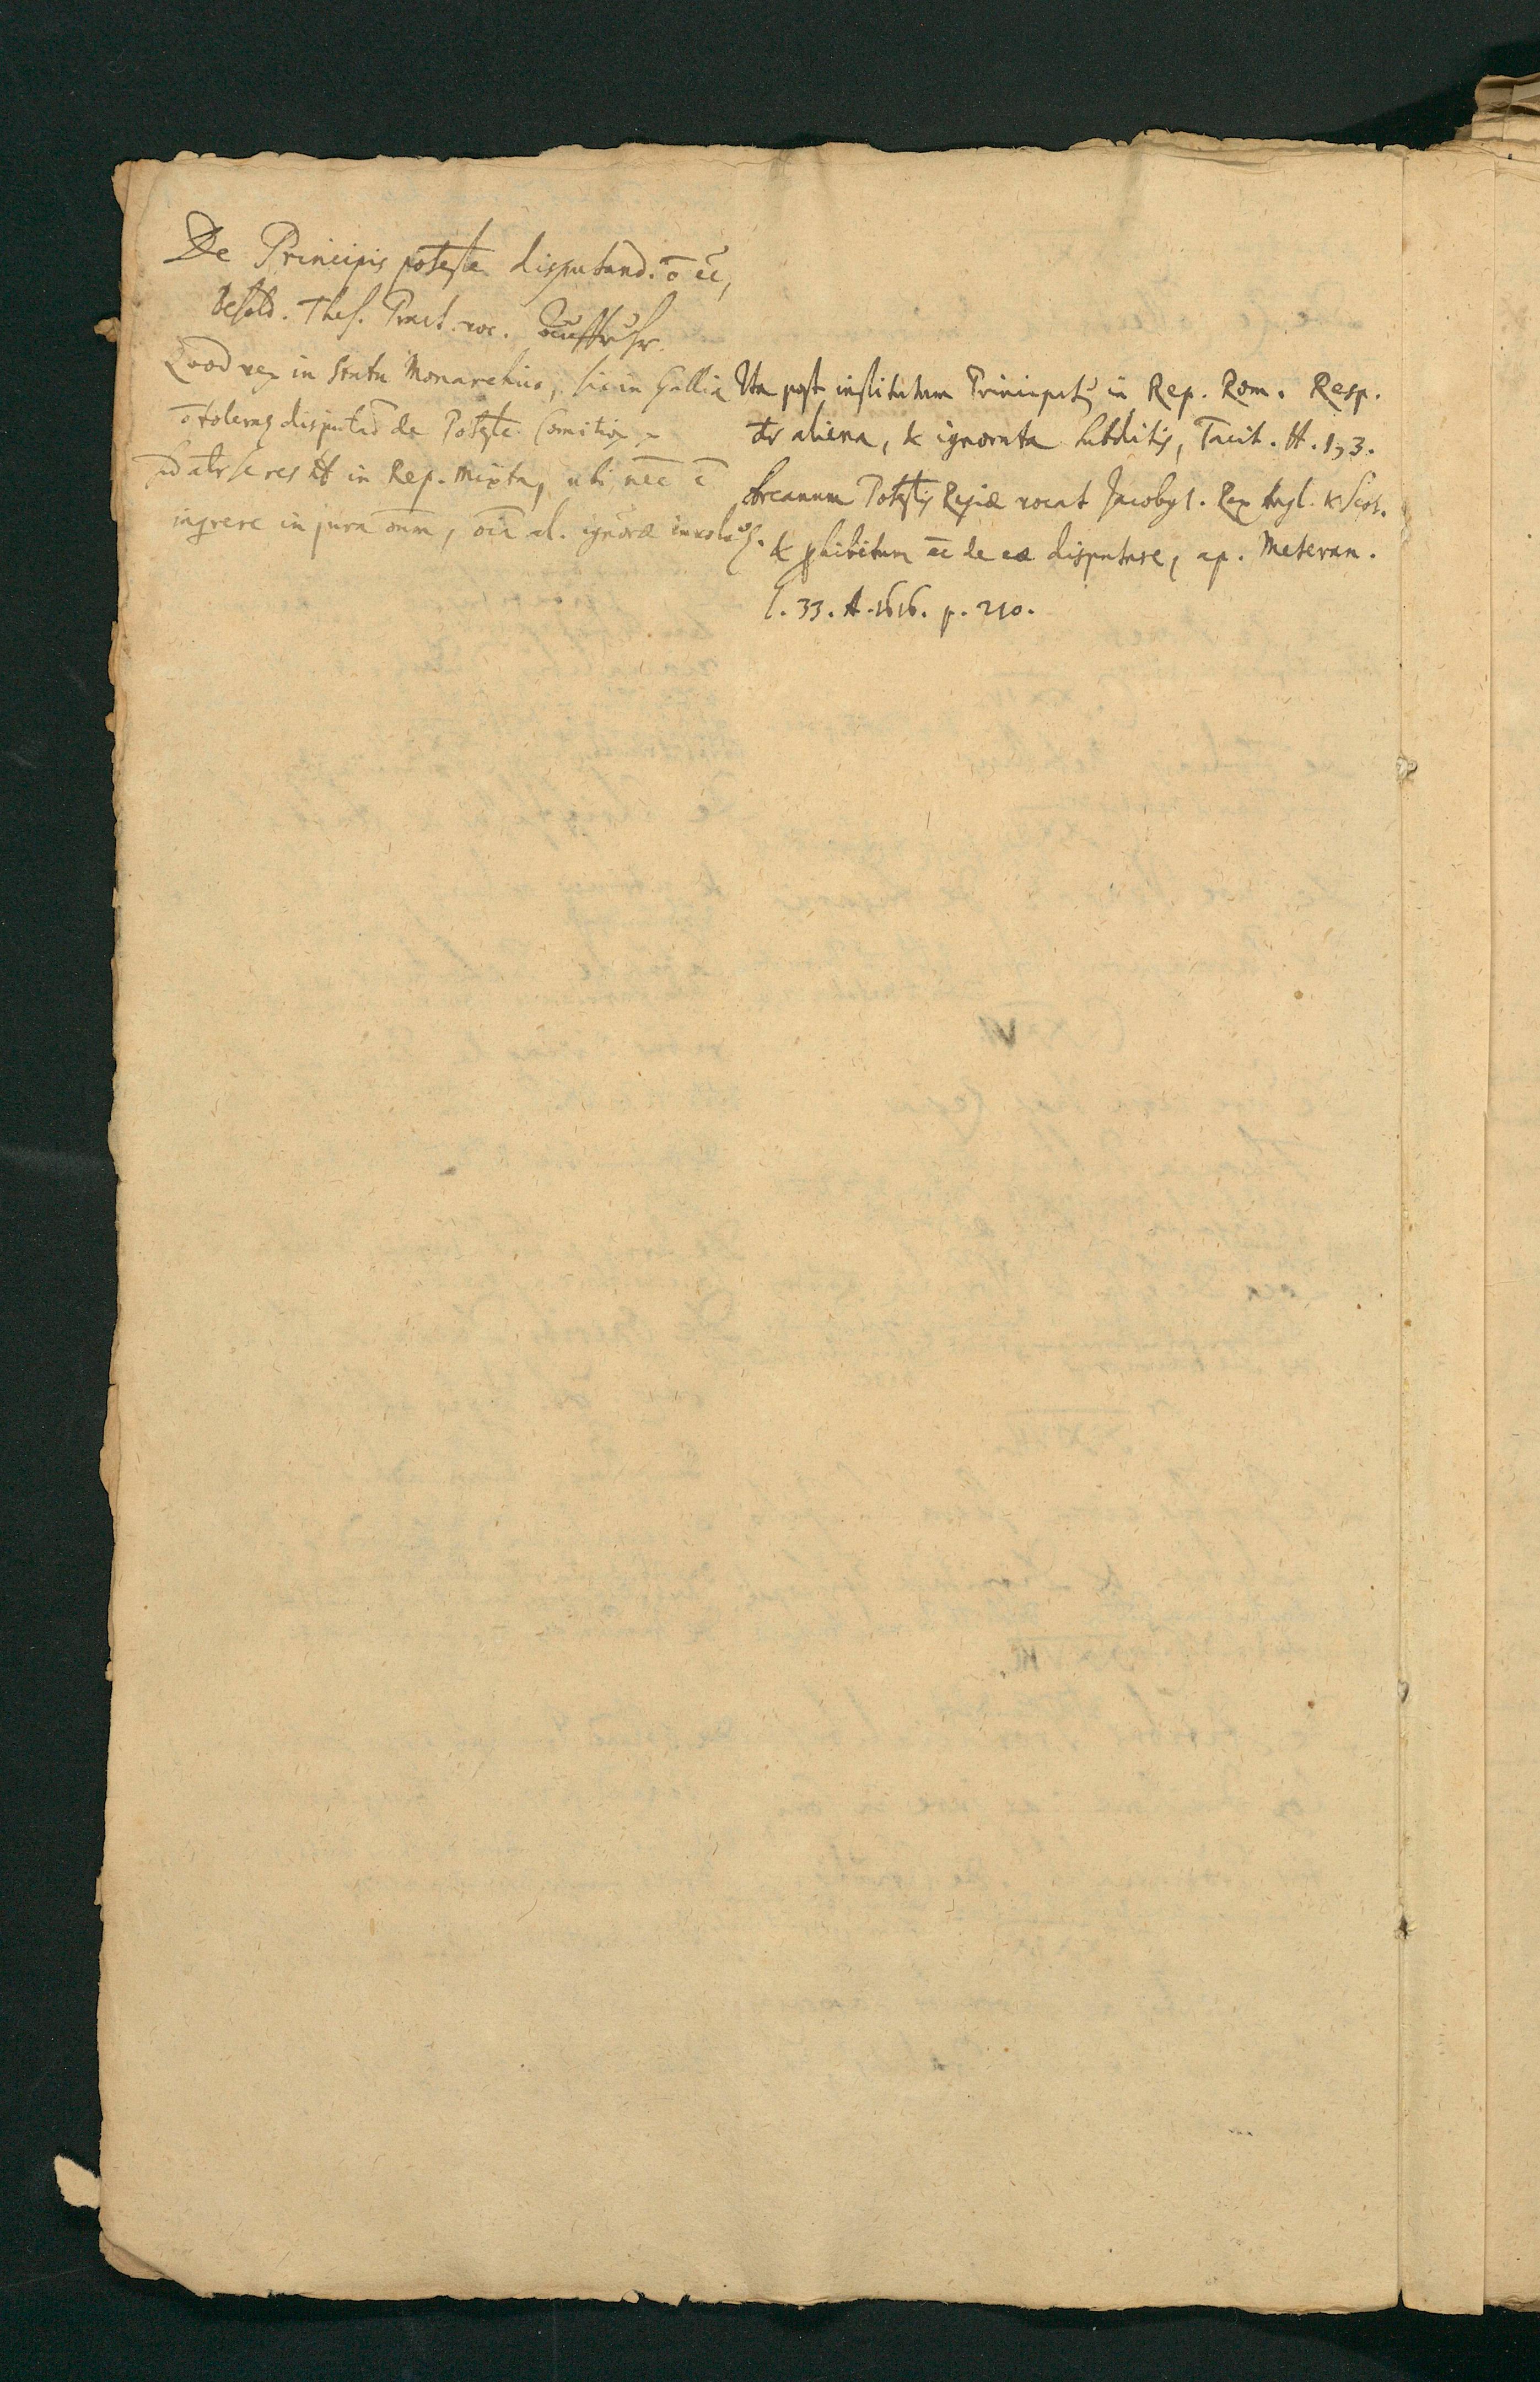 De Principis poteste disputand. ō eē,
Besold. Thes. Pract. voc. Auffruhr.
Quod ver in Statu Monarchico, sic in Gallia
ō tolerat disputaō de Poteste Comitior.
res H in Rep. Mixta, ubi nec ē
inqrere in jura omm, oīa al. ignorae
Ita post institutum Principat9 in Rep. Rom. Resp.
dr aliena, & ignorata subditis, Tacit. H. 1, 3.
Arcanum Potestis Regiae vocat Jacob9 1. Rex Angl. & Scot.
& phibitum eē de ea disputare, ap. Meteran.
l. 33. A. 1616. p. 210.